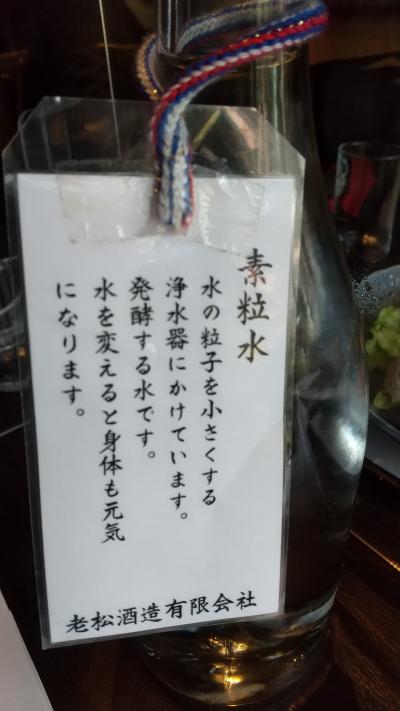 素粒水
水の粒子を小さくする
浄水器にかけています。
発酵する水です。
水を変えると身体も元気
になります。
老松酒造有限会社